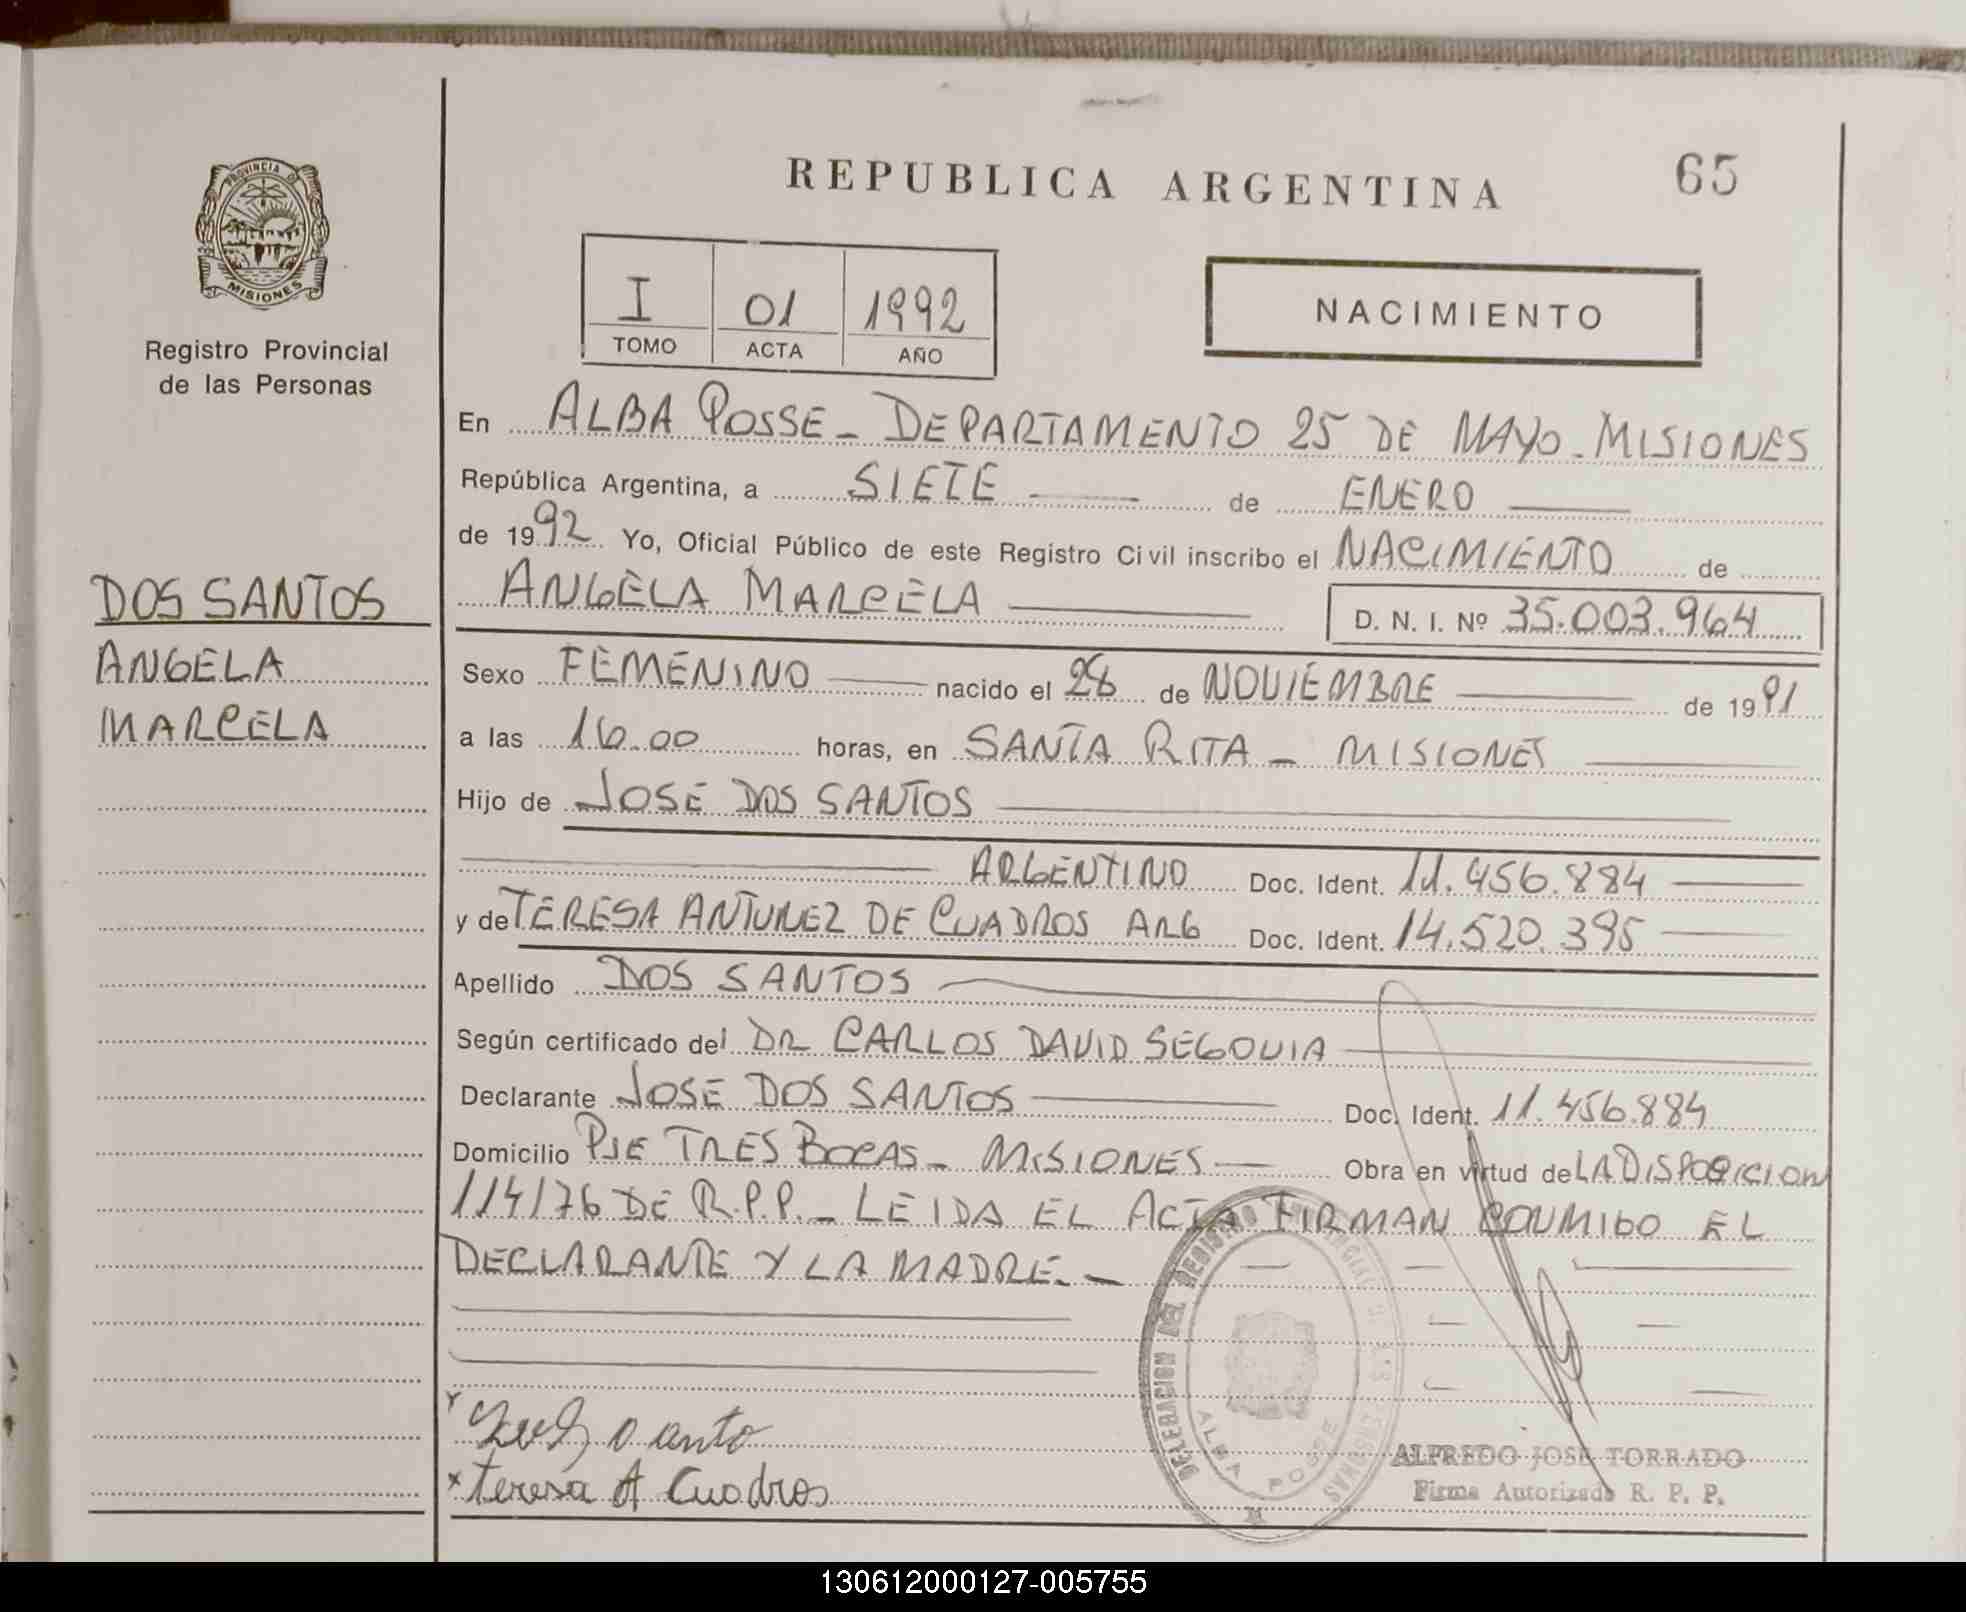 REPUBLICA ARGENTINA
65
PROVINCIA DE
MISIONES
Registro Provincial
de las Personas
I 01 1992
TOMO ACTA AÑO
NACIMIENTO
En ALBA POSSE - DEPARTAMENTO 25 DE MAYO - MISIONES
República Argentina, a SIETE de ENERO
de 1992 Yo, Oficial Público de este Registro Civil inscribo el NACIMIENTO de
ANGELA MARCELA D. N. I. Nº 35.003.964
DOS SANTOS
ANGELA
MARCELA
Sexo FEMENINO nacido el 28 de NOVIEMBRE de 1991
a las 16.00 horas, en SANTA RITA - MISIONES
Hijo de JOSE DOS SANTOS
ARGENTINO Doc. Ident. 11.456.884
y de TERESA ANTUNEZ DE CUADROS ARG Doc. Ident. 14.520.395
Apellido DOS SANTOS
Según certificado del DR CARLOS DAVID SEGOVIA
Declarante JOSE DOS SANTOS Doc. Ident. 11.456.884
Domicilio PJE TRES BOCAS - MISIONES Obra en virtud de LA DISPOSICION
114/76 DE R.P.P. - LEIDA EL ACTA FIRMAN CONMIGO EL
DECLARANTE Y LA MADRE. -
DELEGACION DEL REGISTRO PROVINCIAL DE LAS PERSONAS
ALBA POSSE
x Teresa A Cuadros
ALFREDO JOSE TORRADO
Firma Autorizada R. P. P.
130612000127-005755